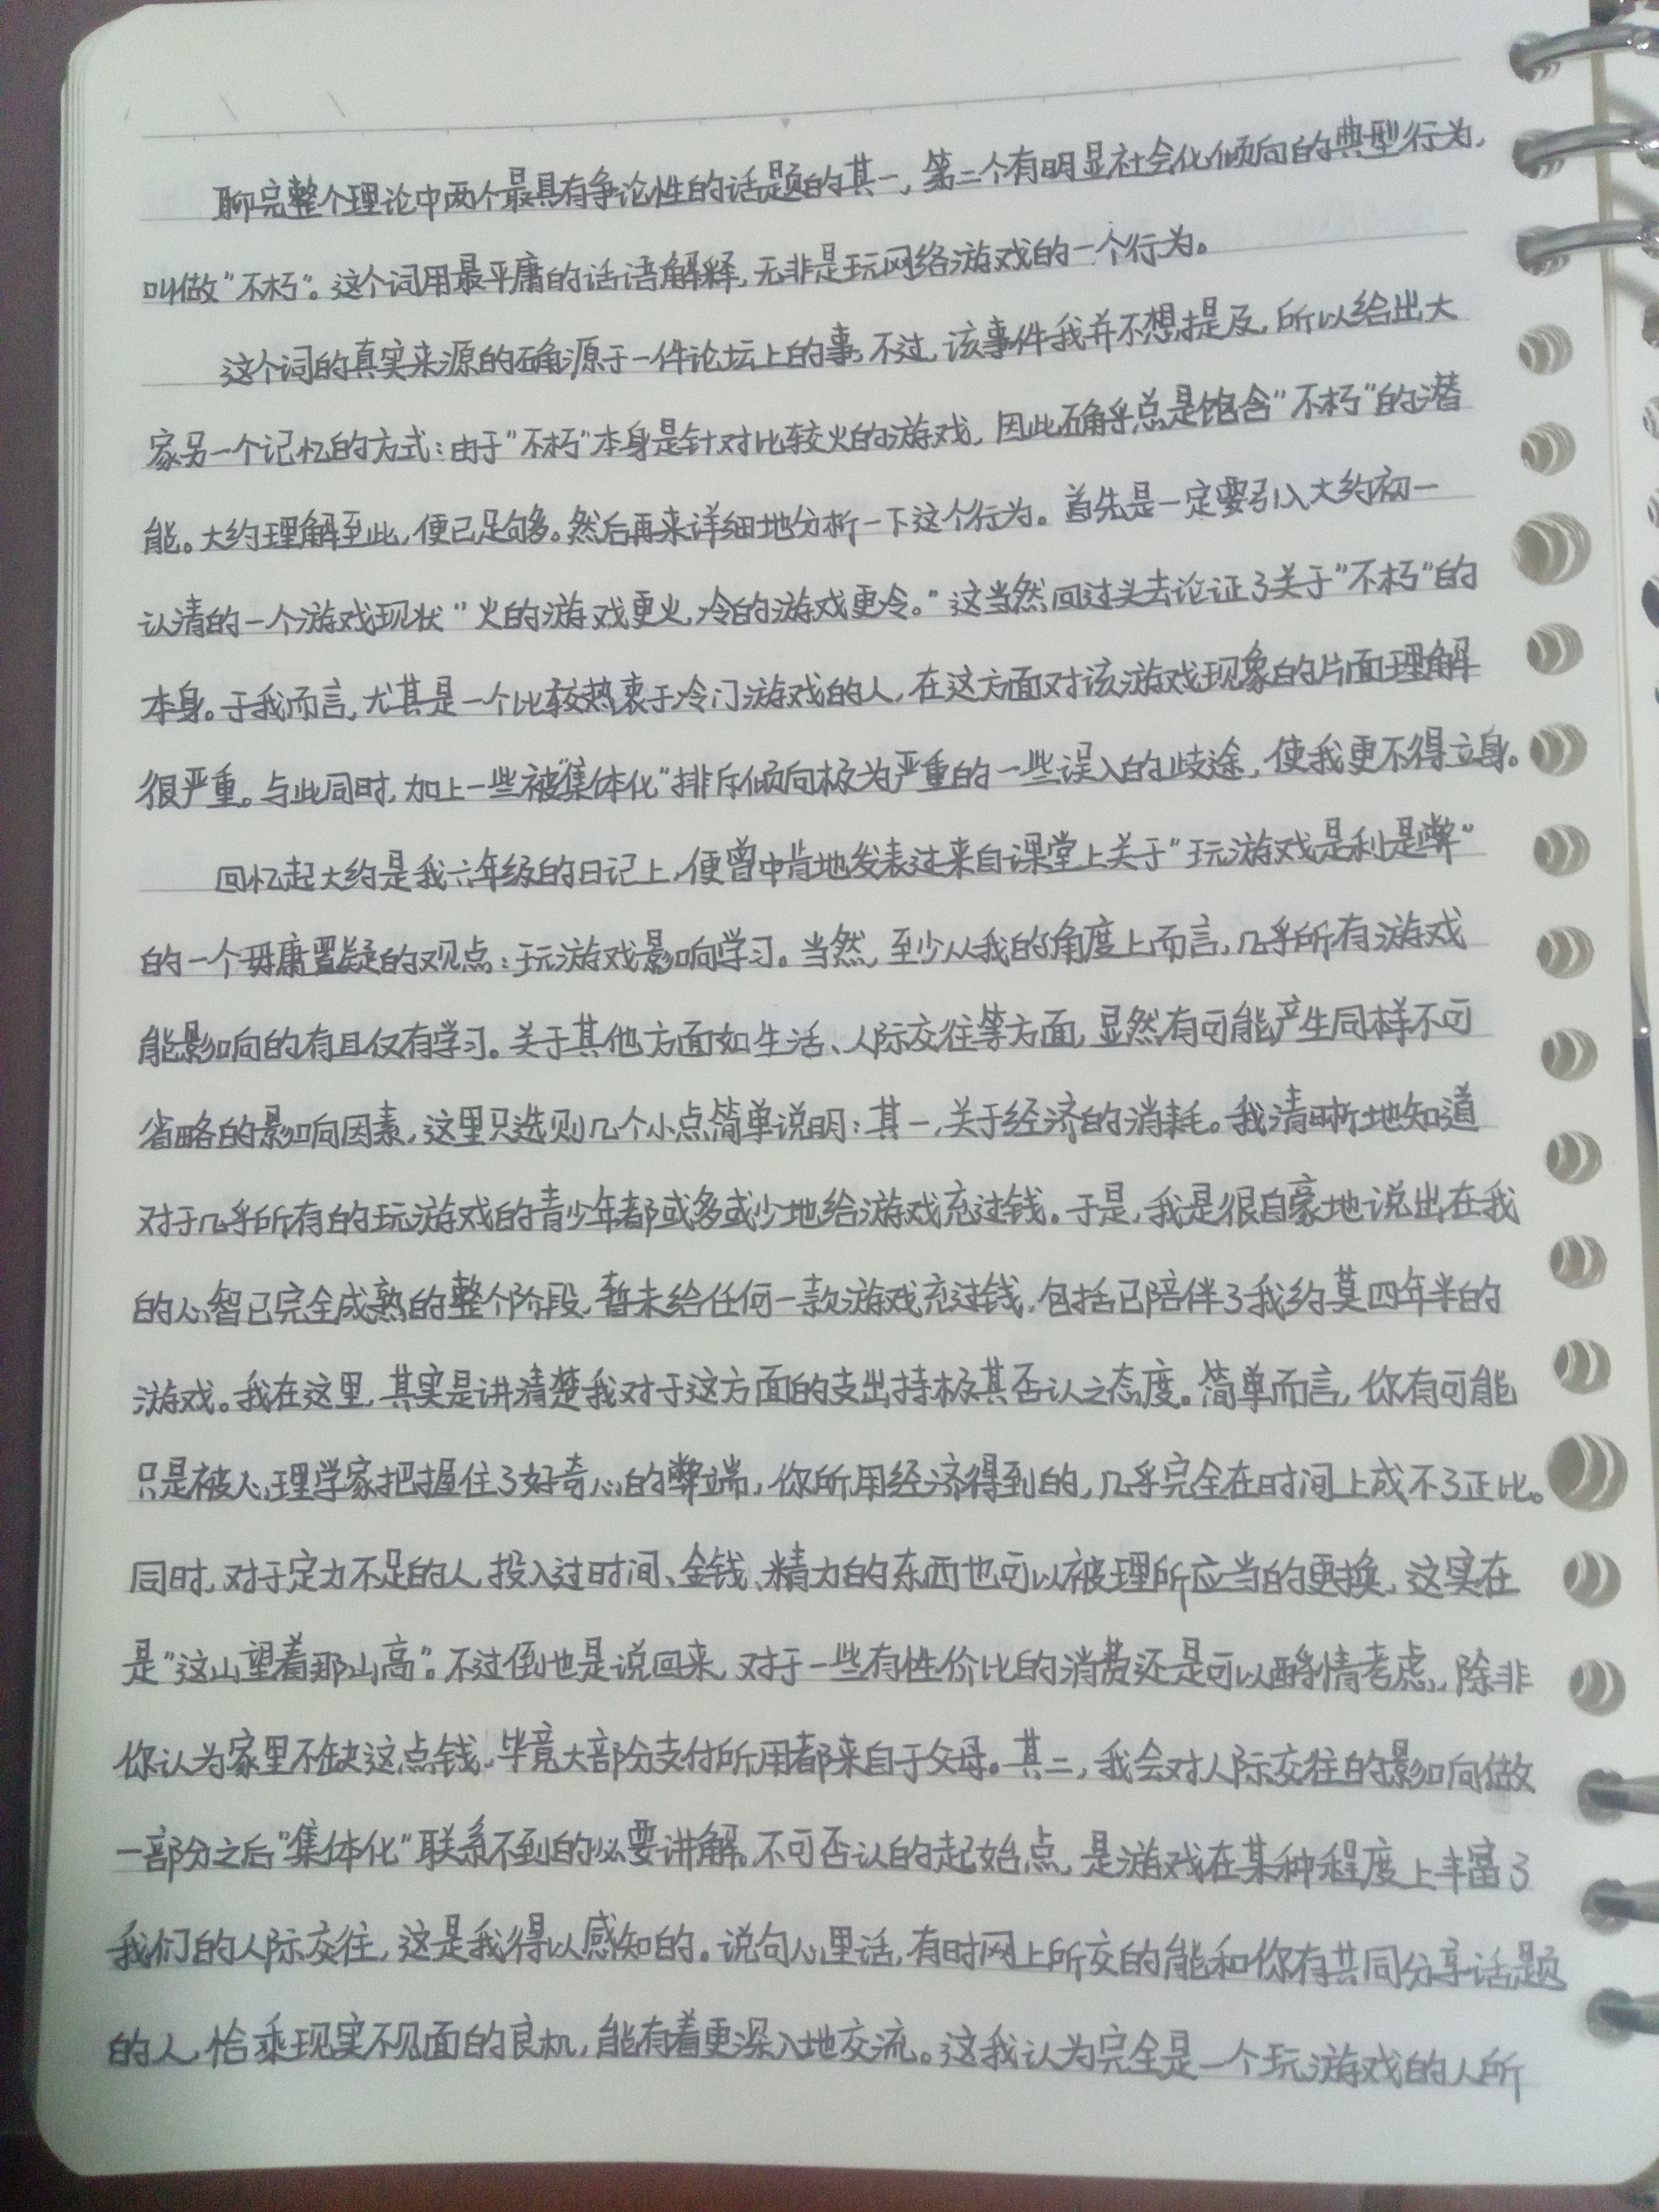 聊完整个理论中两个最具有争论性的话题的其一，第二个有明显社会化倾向的典型行为，
叫做“不朽”。这个词用最平庸的话语解释，无非是玩网络游戏的一个行为。
这个词的真实来源的确源于一件论坛上的事，不过，该事件我并不想提及，所以给出大
家另一个记忆的方式：由于“不朽”本身是针对比较火的游戏，因此确乎总是饱含“不朽”的潜
能。大约理解至此，便已足够多。然后再来详细地分析一下这个行为。首先是一定要引入大约初一
认清的一个游戏现状“火的游戏更火，冷的游戏更冷。”这当然回过头去论证了关于“不朽”的
本身。于我而言，尤其是一个比较热衷于冷门游戏的人，在这方面对该游戏现象的片面理解
很严重。与此同时，加上一些被“集体化”排斥倾向极为严重的一些误入的歧途，使我更不得立身。
回忆起大约是我六年级的日记上，便曾中肯地发表过来自课堂上关于“玩游戏是利是弊”
的一个毋庸置疑的观点：玩游戏影响学习。当然，至少从我的角度上而言，几乎所有游戏
能影响的有且仅有学习。关于其他方面如生活、人际交往等方面，显然有可能产生同样不可
省略的影响因素，这里只选则几个小点简单说明：其一，关于经济的消耗。我清晰地知道
对于几乎所有的玩游戏的青少年都或多或少地给游戏充过钱。于是，我是很自豪地说出在我
的心智已完全成熟的整个阶段，暂未给任何一款游戏充过钱，包括已陪伴了我约莫四年半的
游戏。我在这里，其实是讲清楚我对于这方面的支出持极其否认之态度。简单而言，你有可能
只是被心理学家把握住了好奇心的弊端，你所用经济得到的，几乎完全在时间上成不了正比。
同时，对于定力不足的人，投入过时间、金钱、精力的东西也可以被理所应当的更换，这实在
是“这山望着那山高”。不过倒也是说回来，对于一些有性价比的消费还是可以酌情考虑，除非
你认为家里不缺这点钱，毕竟大部分支付所用都来自于父母。其二，我会对人际交往的影响做
一部分之后“集体化”联系不到的必要讲解。不可否认的起始点，是游戏在某种程度上丰富了
我们的人际交往，这是我得以感知的。说句心里话，有时网上所交的能和你有共同分享话题
的人，恰乘现实不见面的良机，能有着更深入地交流。这我认为完全是一个玩游戏的人所